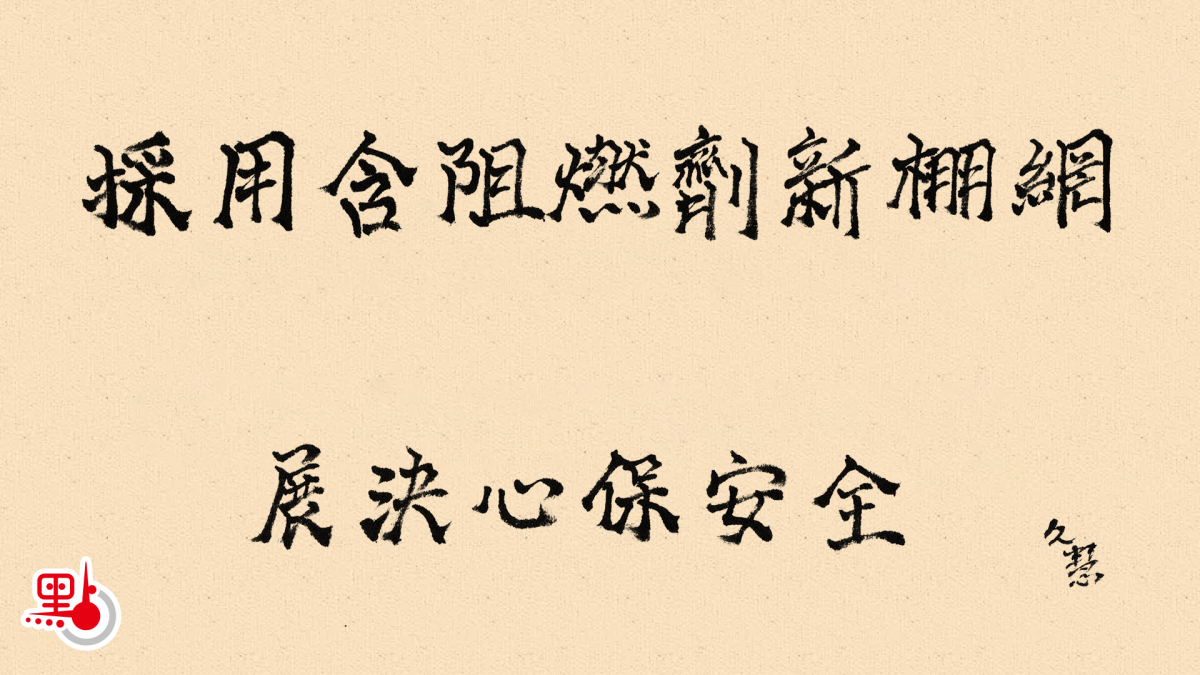 採用含阻燃劑新棚網
展決心保安全
久慧
點